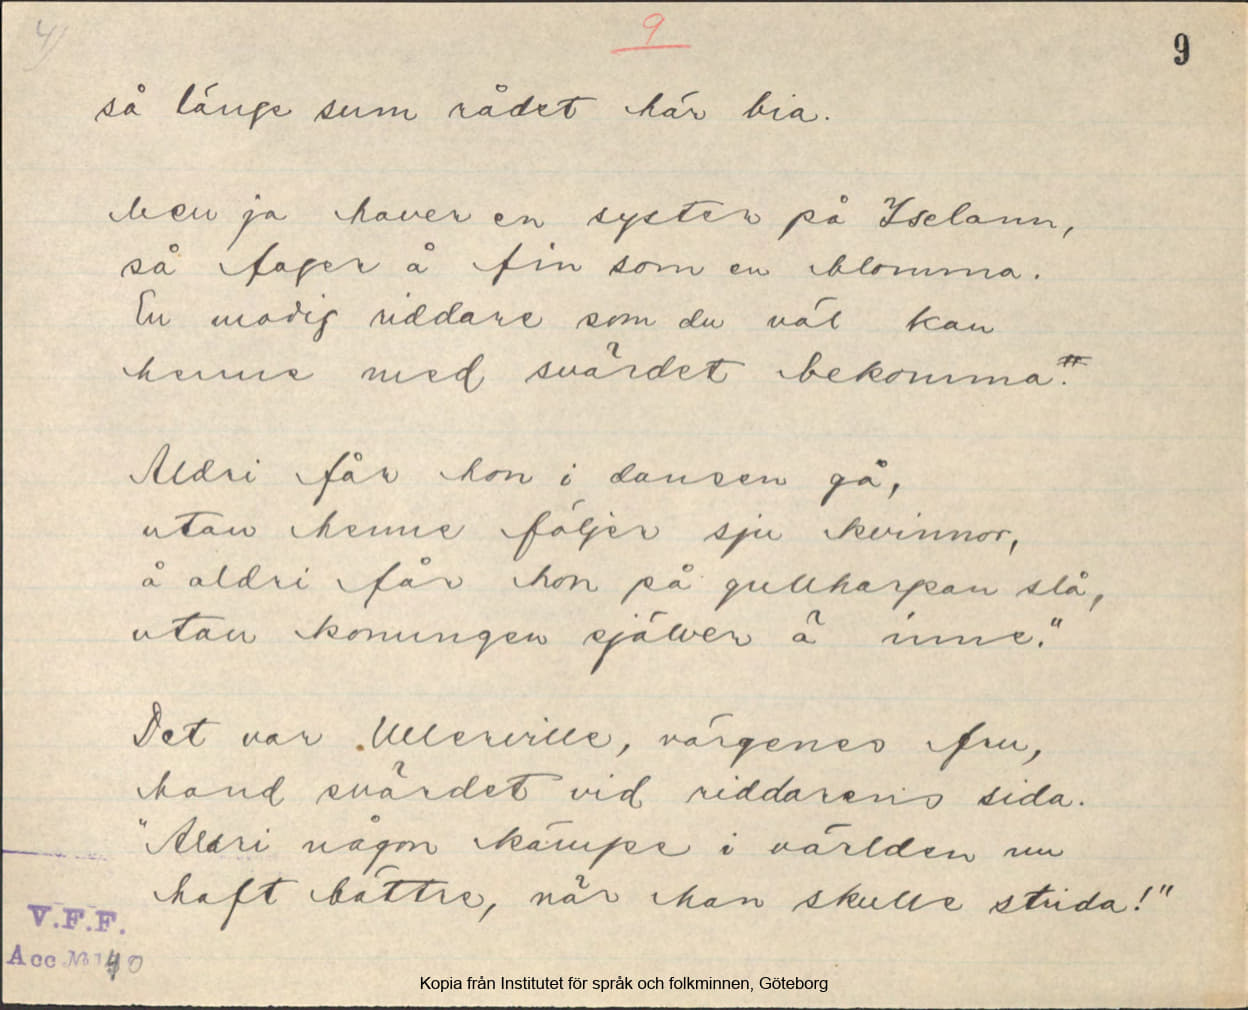 4)
9
9
så länge sum rådet här bia.
Men ja haver en syster på Iselann,
så fager å fin som en blomma.
En modig riddare som du väl kan
henne med svärdet bekomma.
Aldri får hon i dansen gå,
utan henne följer sju kvinnor,
å aldri får hon på gullharpan slå,
utan konungen själver ä inne."
Det var Ullerville, värgenes fru,
band svärdet vid riddarens sida.
"Aldri någon kämpe i världen nu
haft bättre, när han skulle strida!"
V.F.F.
Acc №
Kopia från Institutet för språk och folkminnen, Göteborg